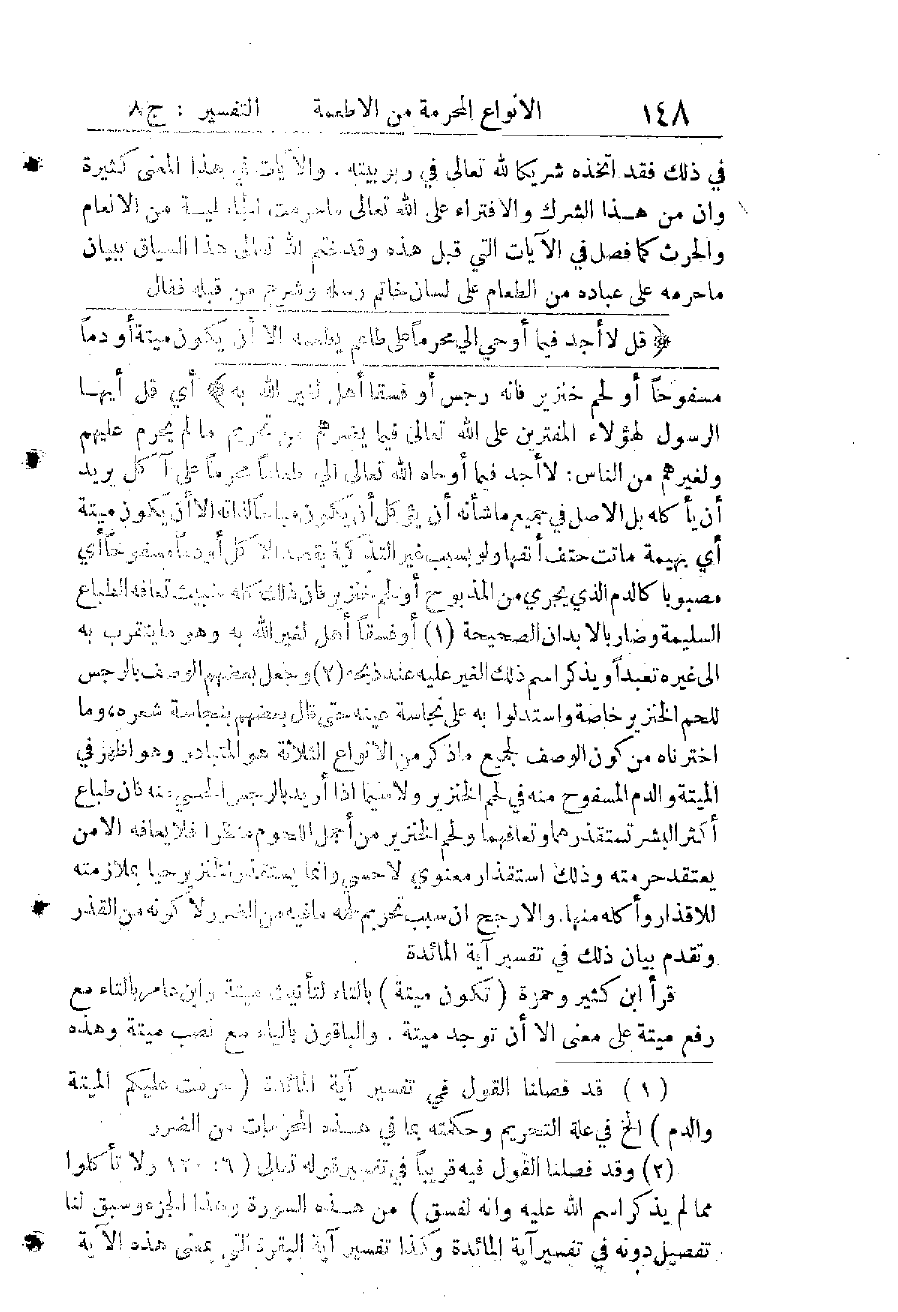 ١٤٨ الأنواع المحرمة من الاطعمة التفسير : ج٨
في ذلك فقد اتخذه شريكا لله تعالى في ربوبيته . والآيات في هذا المعنى كثيرة
وان من هذا الشرك والافتراء على الله تعالى ماحرمت الجاهلية من الانعام
والحرث كما فصل في الآيات التي قبل هذه وقد ختم الله تعالى هذا السياق ببيان
ماحرمه على عباده من الطعام على لسان خاتم رسله وشرع من قبله فقال
﴿ قل لا أجد فيما أوحي الي محرماً على طاعم يطعمه الا أن يكون ميتة أو دماً
مسفوحاً أو لحم خنزير فانه رجس أو فسقا أهل لغير الله به ﴾ أي قل أيها
الرسول لهؤلاء المفترين على الله تعالى فيما يضرهم من تحريم مالم يحرم عليهم
ولغيرهم من الناس: لا أجد فيما أوحاه الله تعالى الي طعاماً محرماً على آكل يريد
أن يأكله بل الاصل في جميع ماشأنه أن يؤكل أن يكون مباحاً لذاته الا أن يكون ميتة
أي بهيمة ماتت حتف أنفها ولو بسبب غير التذكية بقصد الاكل أو دماً مسفوحاً أي
مصبوبا كالدم الذي يجري من المذبوح أو لحم خنزير فان ذلك كله خبيث تعافه الطباع
السليمة وضار بالابدان الصحيحة (١) أو فسقاً أهل لغير الله به وهو مايتقرب به
الى غيره تعبداً ويذكر اسم ذلك الغير عليه عند ذبحه (٢) وجعل بعضهم الوصف بالرجس
للحم الخنزير خاصة واستدلوا به على نجاسة عينه حتى قال بعضهم بنجاسة شعره، وما
اخترناه من كون الوصف لجميع ماذكر من الأنواع الثلاثة هو المتبادر وهو اظهر في
الميتة والدم المسفوح منه في لحم الخنزير ولاسيما اذا أريد بالرجس الحسي منه فان طباع
أكثر البشر تستقذرهما وتعافهما ولحم الخنزير من أجمل اللحوم منظرا فلا يعافه الا من
يعتقد حرمته وذلك استقذار معنوي لا حسي وانما يستقذر الخنزير حيا بملازمته
للاقذار وأكله منها. والارجح ان سبب تحريم لحمه مافيه من الضرر لا كونه من القذر
وتقدم بيان ذلك في تفسير آية المائدة
قرأ ابن كثير وحمزة ( تكون ميتة ) بالتاء لتأنيث ميتة وابن عامر بالتاء مع
رفع ميتة على معنى الا أن توجد ميتة . والباقون بالياء مع نصب ميتة وهذه
(١) قد فصلنا القول في تفسير آية المائدة ( حرمت عليكم الميتة
والدم ) الخ في علة التحريم وحكمته بما في هذه المحرمات من الضرر
(٢) وقد فصلنا القول فيه قريباً في تفسير قوله تعالى ( ٦: ١٢٠ ولا تأكلوا
مما لم يذكر اسم الله عليه وانه لفسق ) من هذه السورة وهذا الجزء وسبق لنا
تفصيل دونه في تفسير آية المائدة وكذا تفسير آية البقرة التي بمعنى هذه الآية